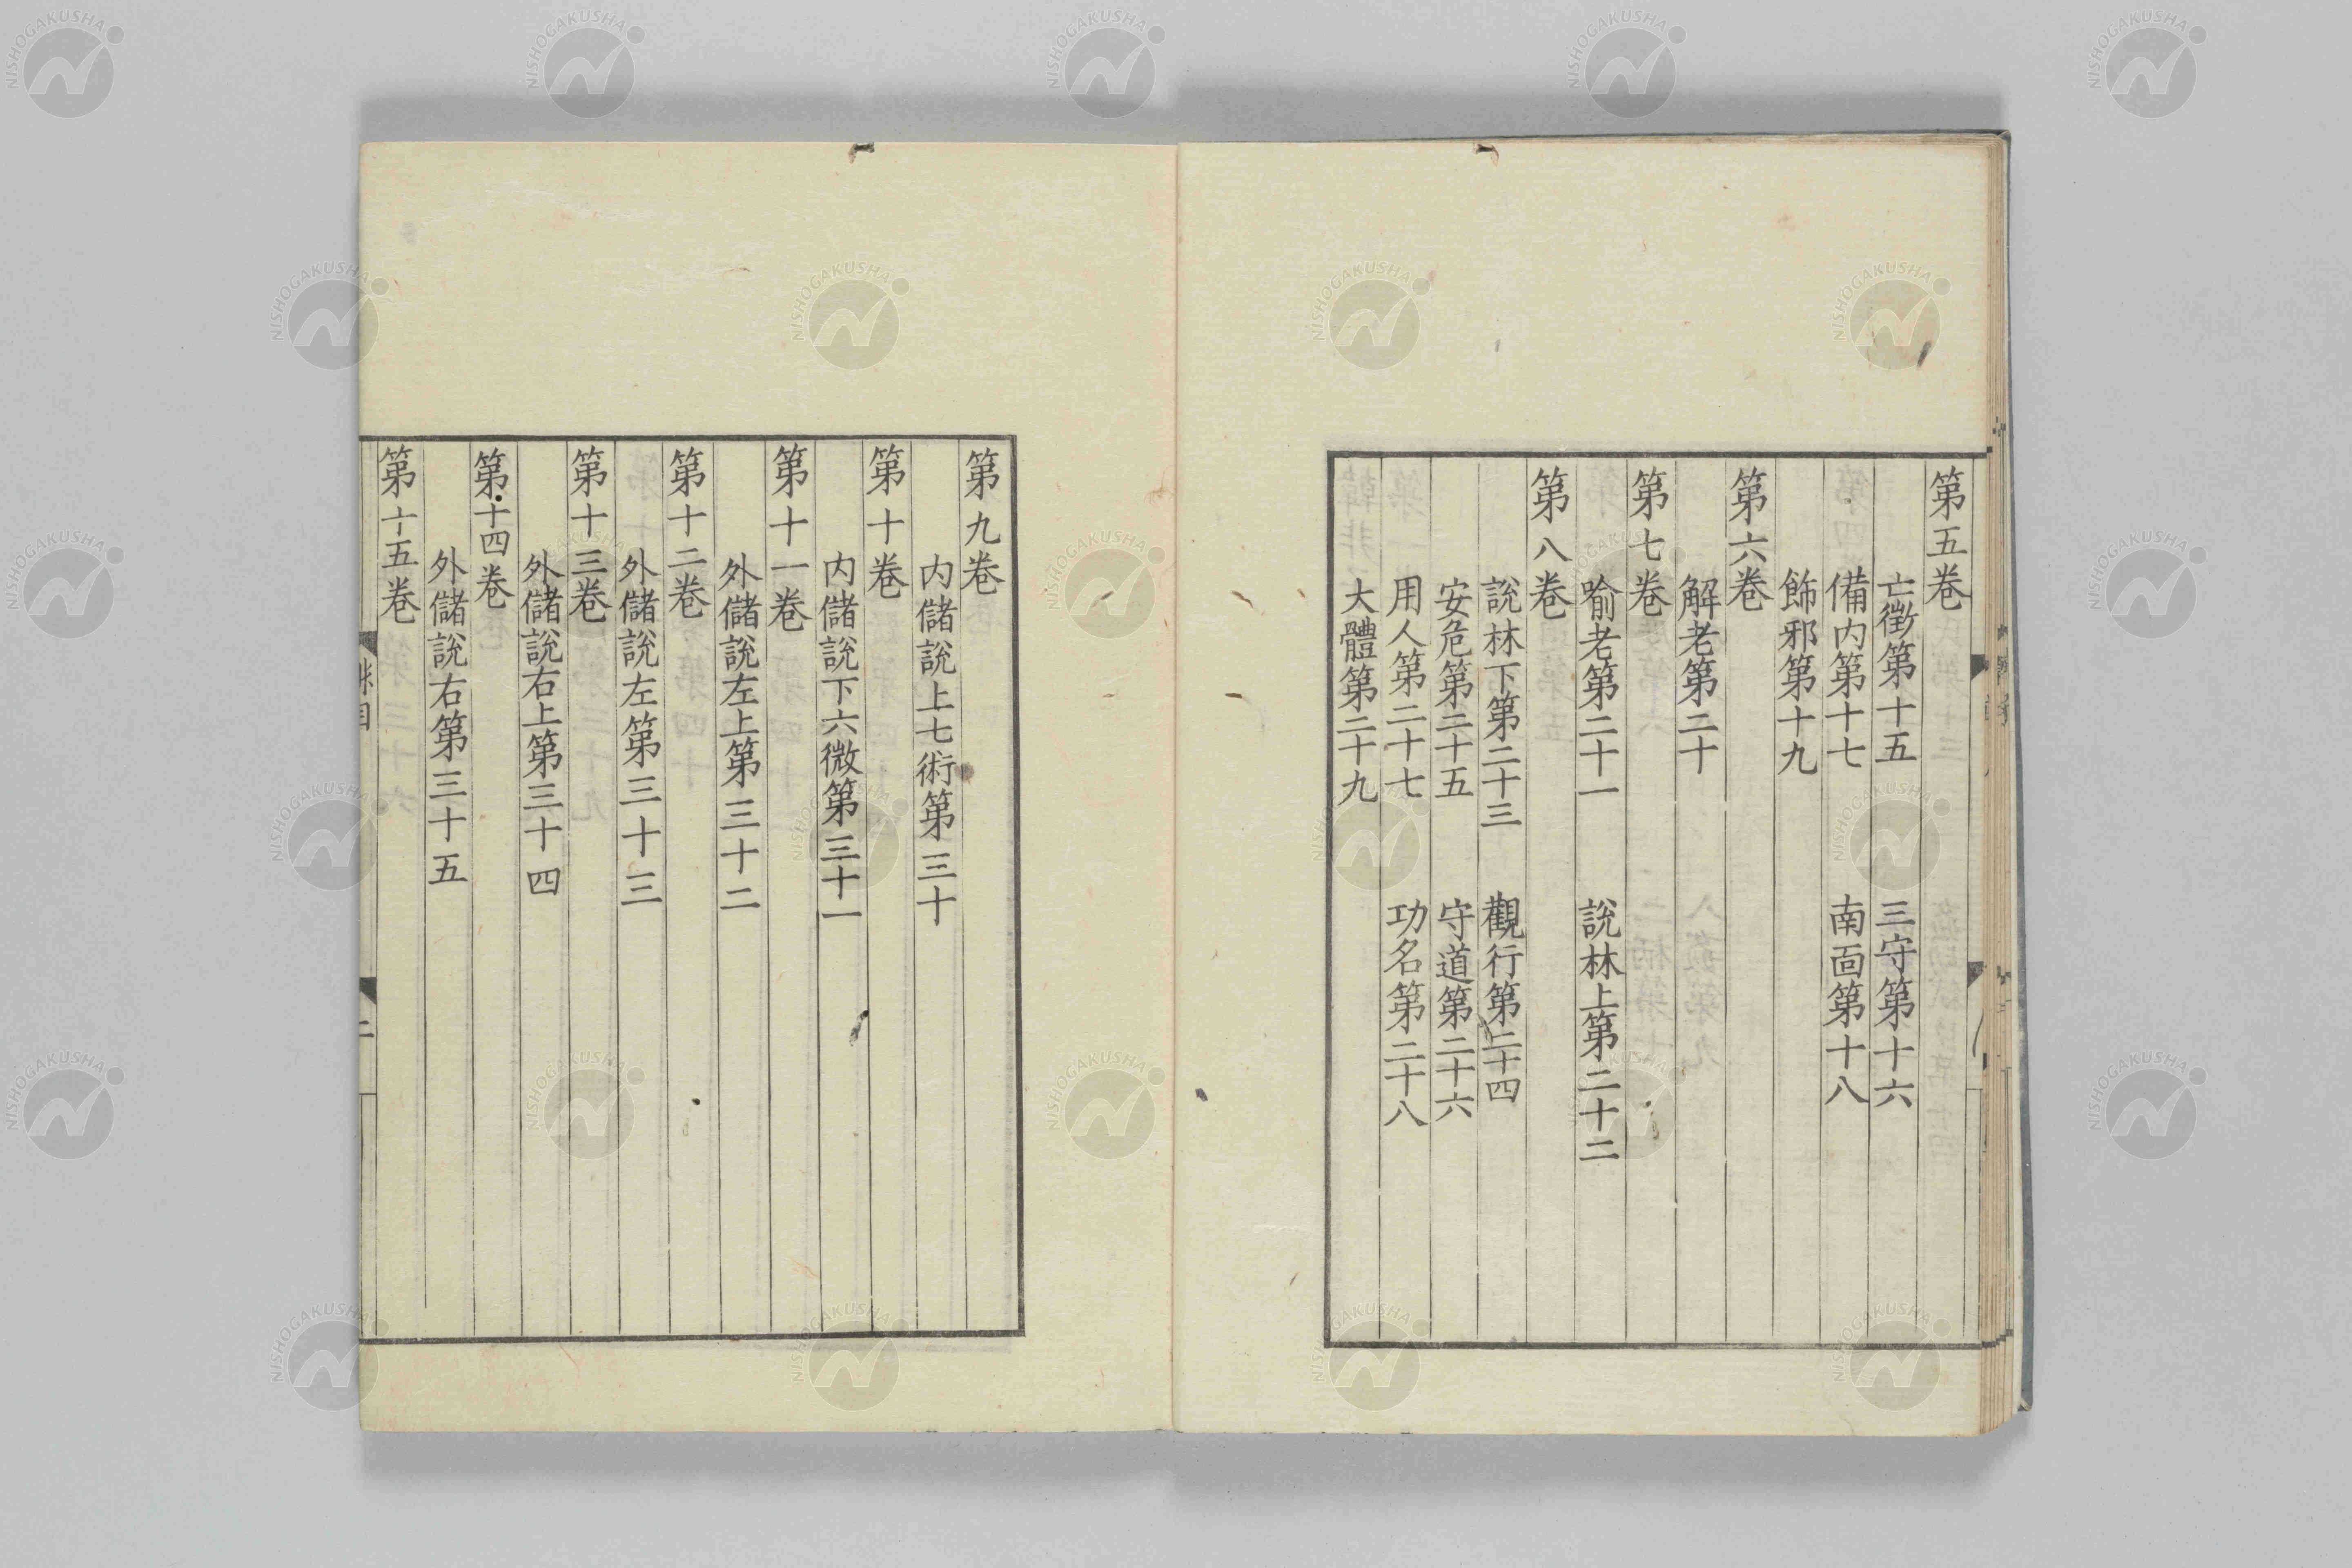 第五卷
亡徵第十五 三守第十六
備内第十七 南面第十八
飾邪第十九
第六卷
解老第二十
第七卷
喻老第二十一 說林上第二十二
第八卷
說林下第二十三 觀行第二十四
安危第二十五 守道第二十六
用人第二十七 功名第二十八
大體第二十九
第九卷
内儲說上七術第三十
第十卷
内儲說下六微第三十一
第十一卷
外儲說左上第三十二
第十二卷
外儲說左第三十三
第十三卷
外儲說右上第三十四
第十四卷
外儲說右第三十五
第十五卷
NISHOGAKUSHA